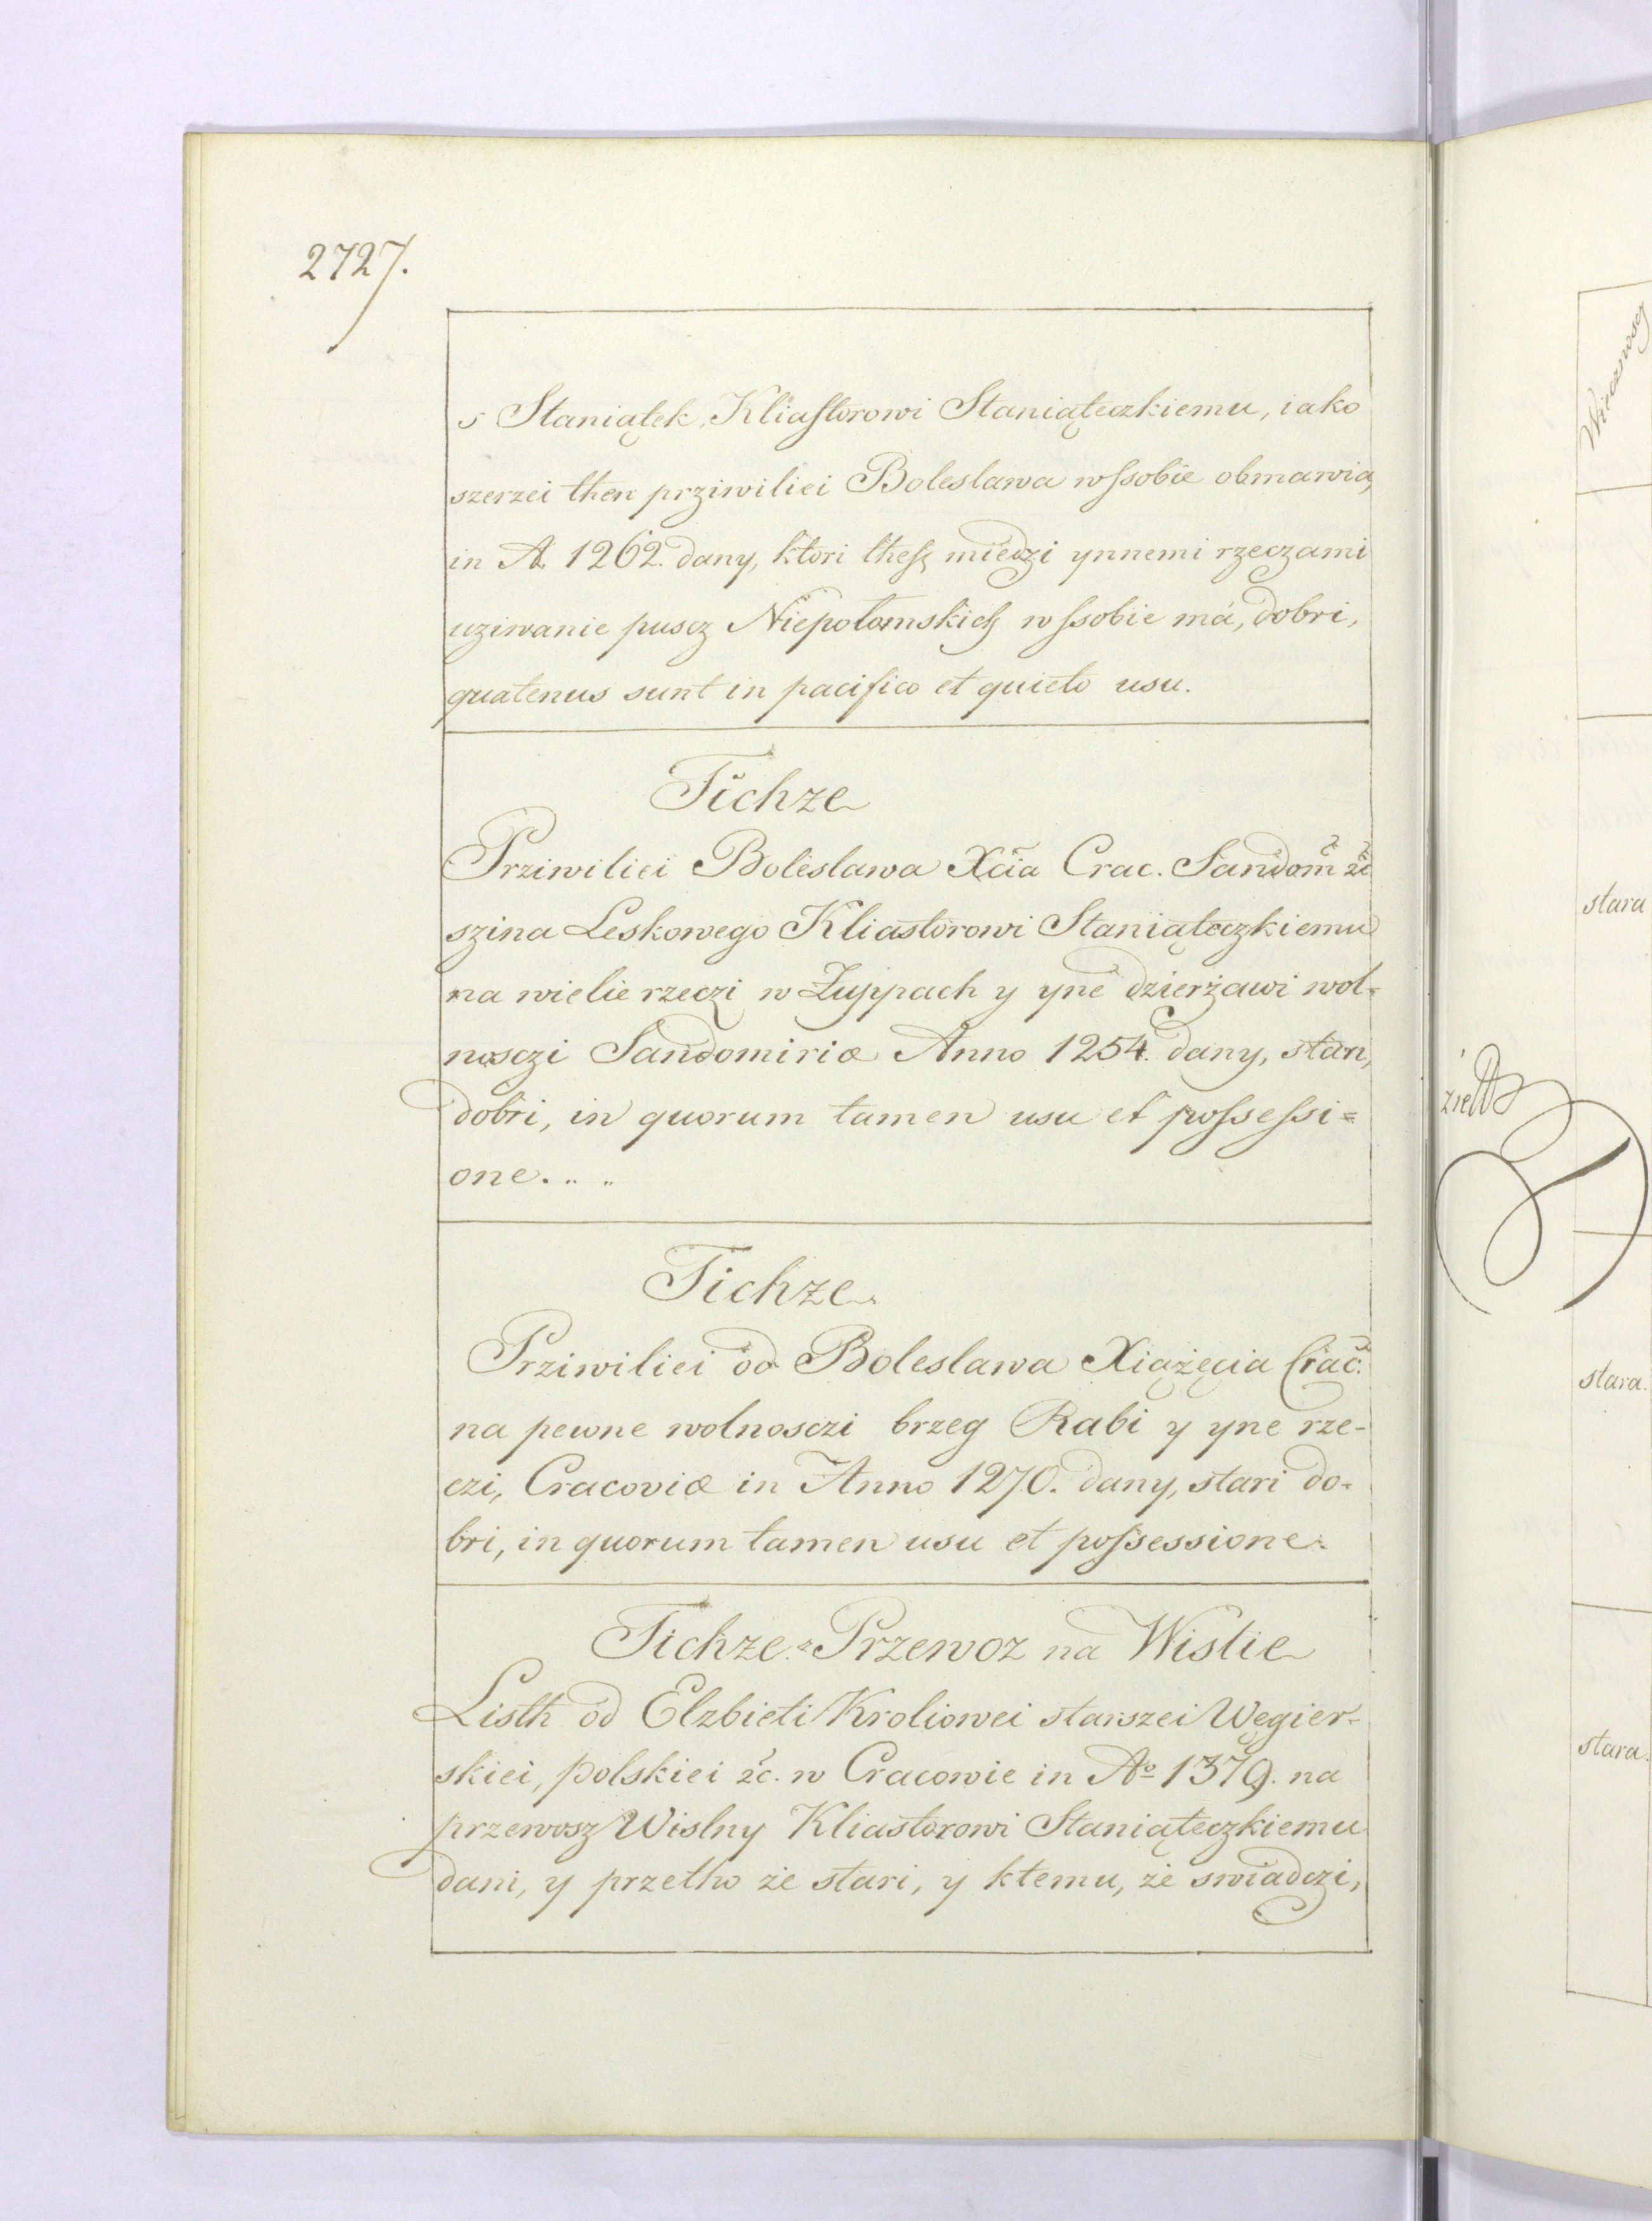 2727.
s Staniątek, Kliasztorowi Staniąteczkiemu, iako
szerzei then prziwiliei Boleslawa wssobie obmawia,
in A. 1262. dany, ktori thesz miedzi ynnemi rzeczami
uziwanie puscz Niepołomskich wssobie má, dobri,
quatenus sunt in pacifico et quieto usu.
Tichze
Prziwiliei Boleslawa Xcia Crac. Sandom
szina Leskowego Kliastorowi Staniąteczkiemu
na wielie rzeczi w Żuppach y yne dzierżawi wol=
nosczi Sandomiriæ Anno 1254. dany, stari,
dobri, in quorum tamen usu et possessi=
one. .. ..
Tichże
Prziwiliei od Boleslawa Xiążęcia Crac:
na pewne wolnosczi brzeg Rabi y yne rze-
czi, Cracoviæ in Anno 1270. dany, stari do-
bri, in quorum tamen usu et possessione.
Tichze. Przewoz na Wislie
Listh od Elzbieti Kroliowei starszei Węgier-
skiei, polskiei &c. w Cracowie in Aº 1379. na
przewosz Wislny Kliastorowi Staniąteczkiemu
dani, y przetho że stari, y ktemu, że swiadczi,
stara
stara.
stara.